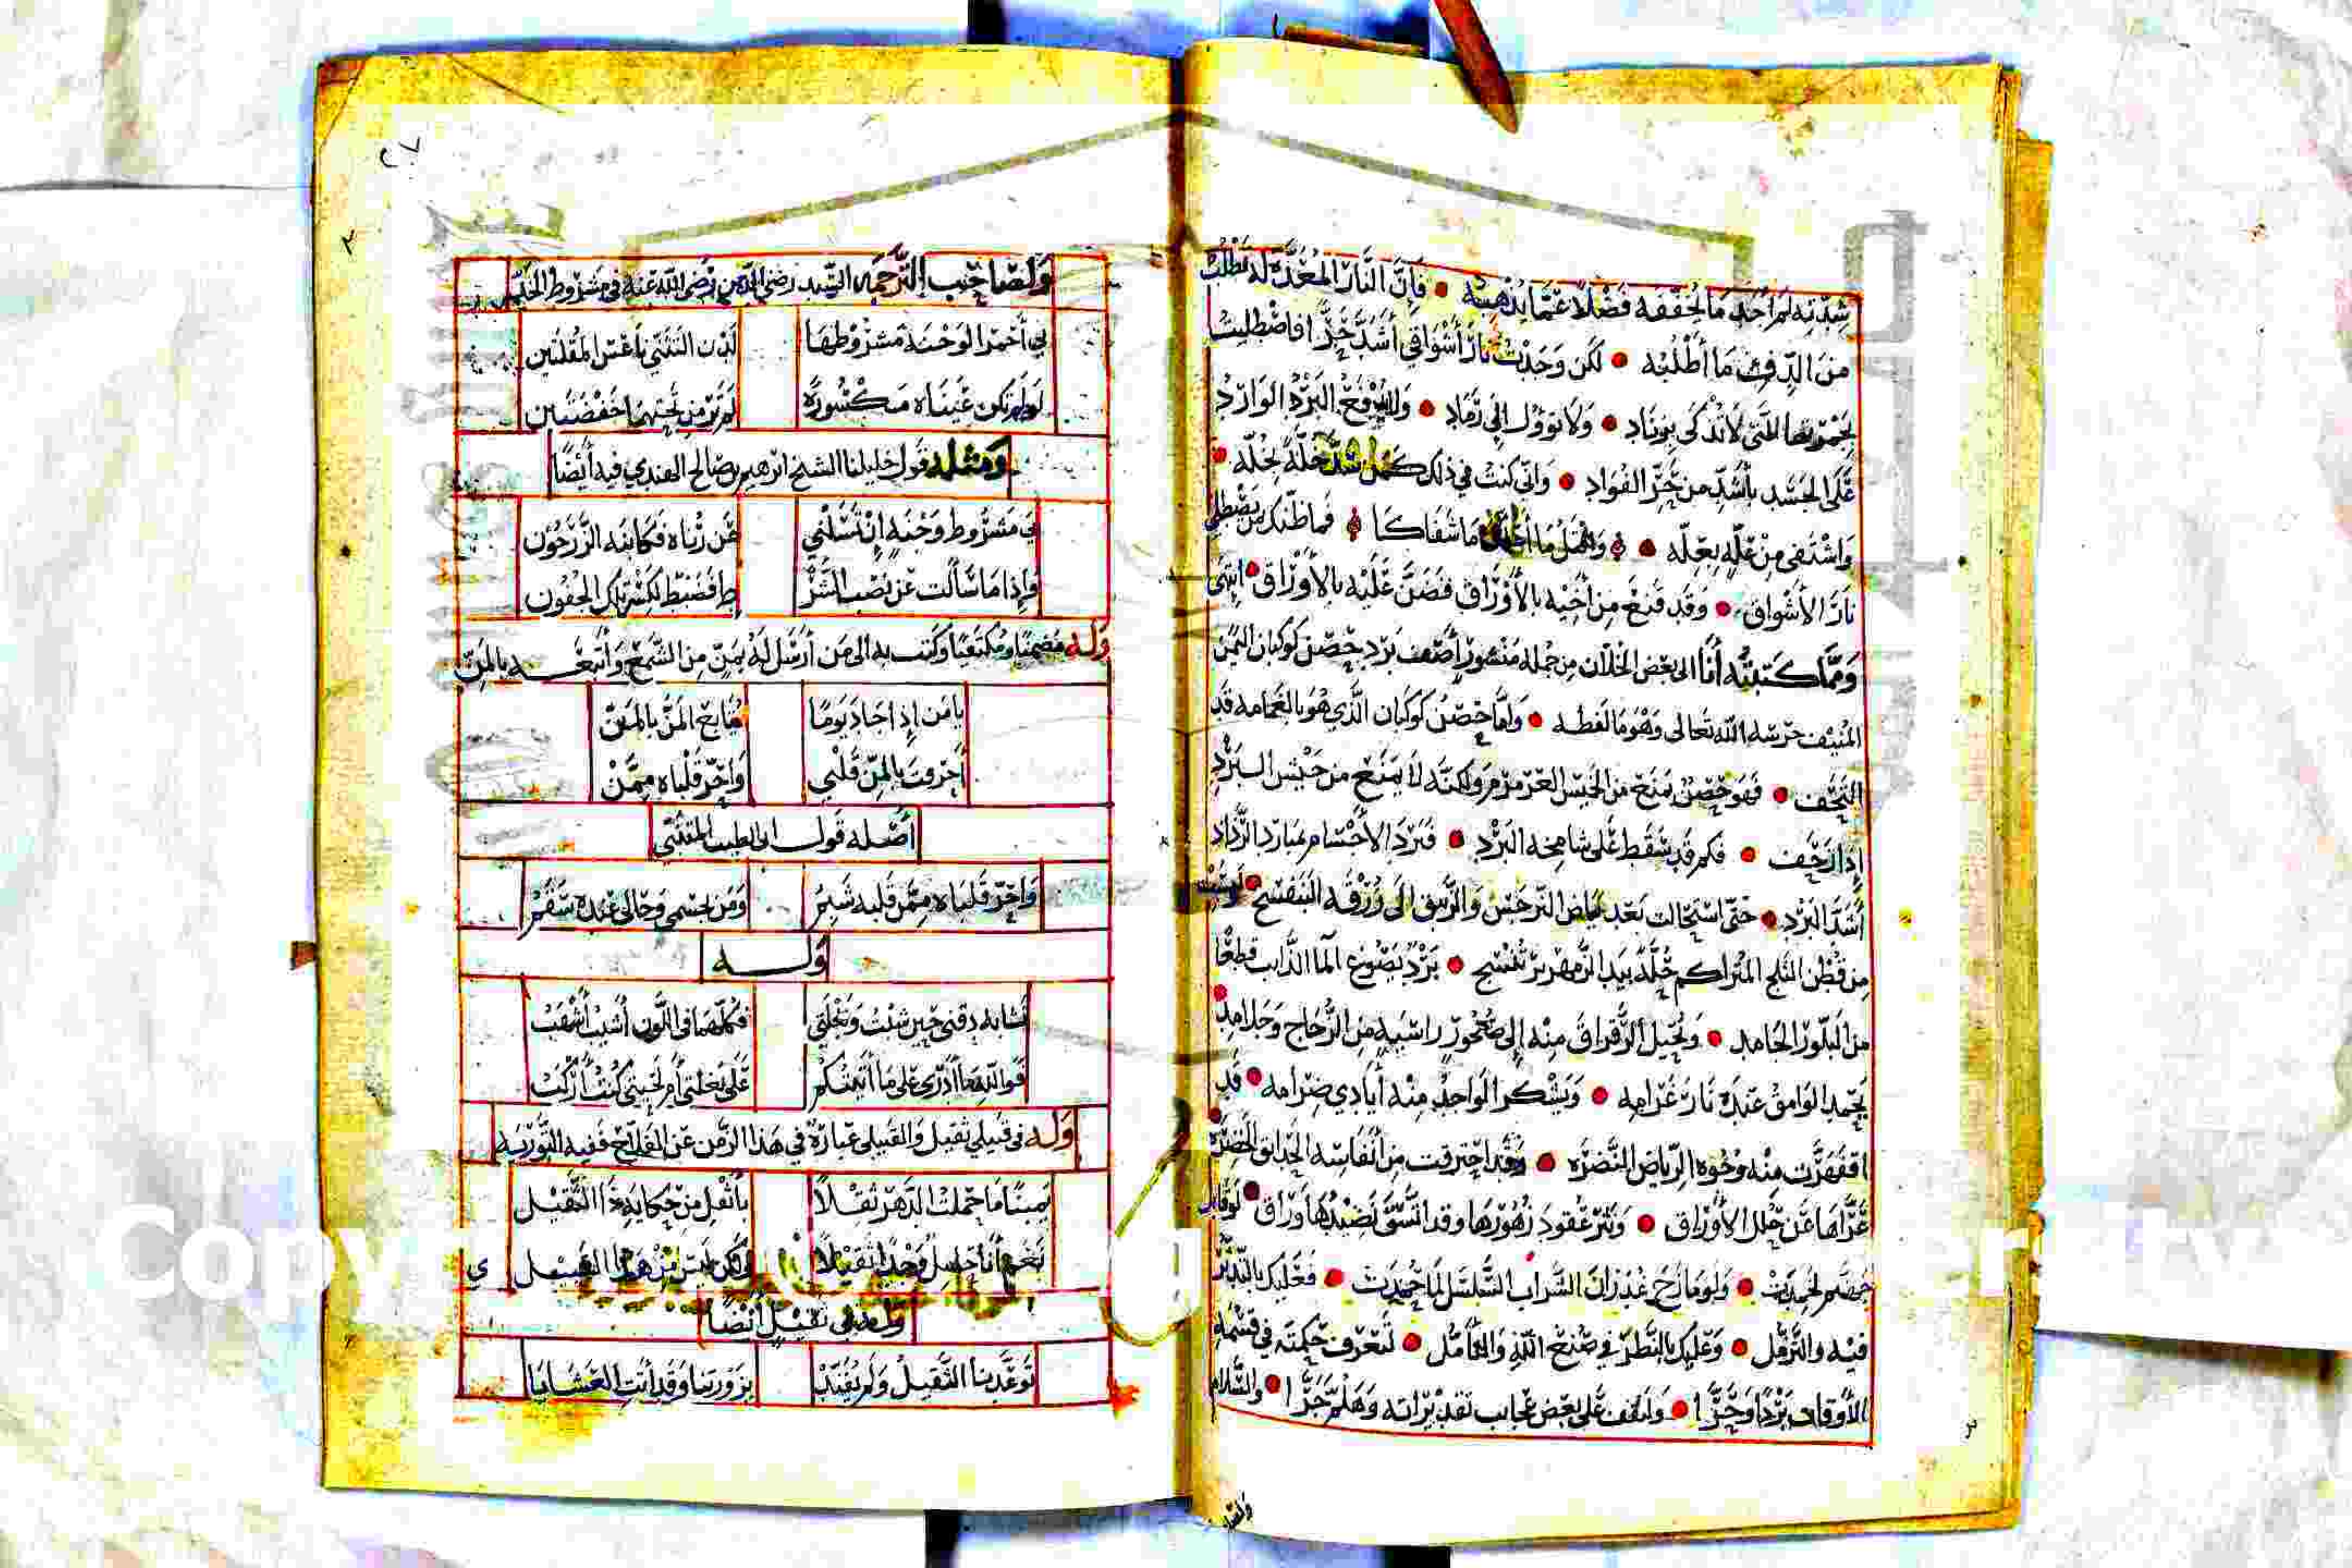 شدته لم أجد ما يخففه فضلا عما يذهبه • فإن النار المعدة له تطلب
من الدفئ ما أطلبه • لكن وجدت نار أشواقي أشد حرا فاصطليت
بجمرتها التي لا تذكى بزناد • ولا تؤول إلى رماد • البرد الوارد
على الجسد بأشد من حر الفواد • وإني كنت في ذلك كمن خلة بخله
واشتفى من علة بعله • ما شفاكا • فما ظنك بمن يصطلي
نار الأشواق • وقد قنع من أخيه بالأوراق فضن عليه بالأوراق • انتهى
ومما كتبته أنا إلى بعض الخلان من جملة منشور أصف برد حصن كوكبان اليمن
المنيف حرسه الله تعالى وهو ما لفظه • وأما حصن كوكبان الذي هو بالغمامة قد
التحف • فهو حصن يمنع من الخميس العرمرم ولكنه لا يمنع من جيش البرد
إذا زحف • فكم قد سقط على شامخه البرد • فبرد الأجسام بمبارد الرذاذ
أشد البرد • حتى استحالت بعد بياض النرجس والزنبق إلى زرقة البنفسج
من قطن الثلج المتراكم حلة بيد الزمهرير تنسج • برد يصوغ الما الذايب قطعا
من البلور الجامد • ويحيل الرقراق منه إلى صخور راسية من الزجاج وجلامد
يحمد الوامق عنده نار غرامه • ويشكر الواجد منه أيادي ضرامه • قد
اقشعرت منه وجوه الرياض النضرة • وقد احترقت من أنفاسه الحدايق الخضرة
عراها عن حلل الأوراق • ونثر عقود زهورها وقد اتسق نضيدها وراق • لو قابل
جهنم لخمدت • ولو مازج غدران الشراب السلسل لما جمدت • فعليك بالتدثر
فيه والتزمل • وعليك بالنظر في صنع الله والتأمل • لتعرف حكمته في قسمة
الأوقات بردا وحرا • واقف على بعض عجايب تقديراته وهلم جرا • والسلام
ولصاحب
٢٧
ولصاحب الترجمة السيد رضي الدين رضي الله عنه في مشروط الخد
بي أحمر الوجنة مشروطها لدن التثني ناعس المقلتين
لو لم تكن عيناه مكسورة لم تر من تحتهما خفضتين
ومثله قول خليلنا الشيخ ابراهيم بن صالح الهندي فيه أيضا
بي مشروط وجنة إن تسلني عن رناه فكانه الزرجون
وإذا ما سألت عن نصب الشر ط فضبط لكسر تلك الجفون
وله مضمنا ومكتفيا وكتب به إلى من أرسل له بمن من الشمع وأتبعه بالمن
يا من إذا جاد يوما يتابع المن بالمن
أحرقت بالمن قلبي واحر قلباه ممن
أصله قول أبي الطيب المتنبي
واحر قلباه ممن قلبه شبم ومن بجسمي وحالي عنده سقم
وله
تشابه ذقني حين شبت وبغلتي فكلهما في اللون أشيب أشهب
فوالله ما أدري على ما أتيتكم على بغلتي أم لحيتي كنت أركب
وله في قبيلي ثقيل والقبيلي عبارة في هذا الزمن عن الفلاح ففيه التورية
يمينا ما حملت الدهر ثقلا بأثقل من حكاية ذا الثقيل
وله في ثقيل أيضا
توعدنا الثقيل ولم يفند بزورتنا وقد أتت العشايا